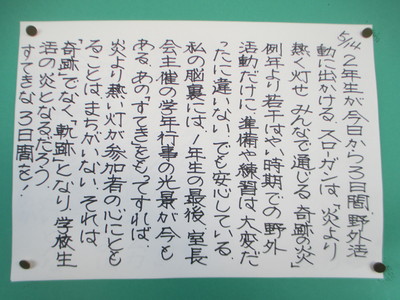 5/14. 2年生が今日から3日間、野外活
動に出かける。スローガンは、「炎より
熱く灯せ みんなで通じる 奇跡の火」
例年より若干はやい時期での野外
活動だけに、準備や練習は大変だ
ったに違いない。でも安心している。
私の脳裏には、1年生の最後、室長
会主催の学年行事の光景が今も
ある。あの「すてき」をもってすれば、
炎より熱い灯が参加者の心にとも
ることは、まちがいない。それは、
「奇跡」でなく、「軌跡」となり、学校生
活の炎となるだろう。
すてきな3日間を!